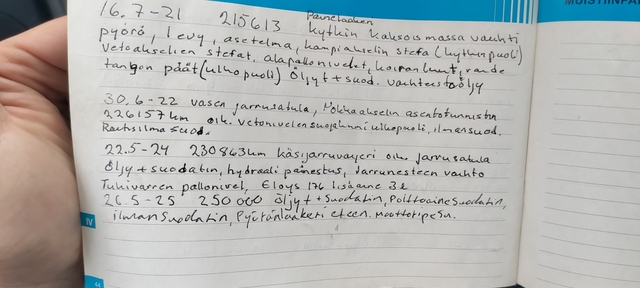 MUISTIINPA
16.7-21 215613 Painelaakeri
kytkin kaksoismassa vauhti
pyörä, levy, asetelma, kampiakselin stefa (kytkinpuoli)
vetoakselien stefat, alapallonivelet, koiranluut, raide
tangon päät (ulkopuoli) Öljyt + suod. vaihteistoöljy
30.6-22 vasen jarrusatula, Nokkaakselin asentotunnistin
226157km oik. vetonivelensuojakumi ulkopuoli, ilmansuod.
Raitisilma suod.
22.5-24 230863km käsijarruvaijeri oik. jarrusatula
Öljy + suodatin, hydrauli painestus, Jarrunesteen vaihto
Tukivarren pallonivel, Eloys 176 lisäaine 3e
26.5-25 250000 öljyt + Suodatin, Polttoainesuodatin,
ilmansuodatin, Pyöränlaakeri eteen. moottoripesu.
IV